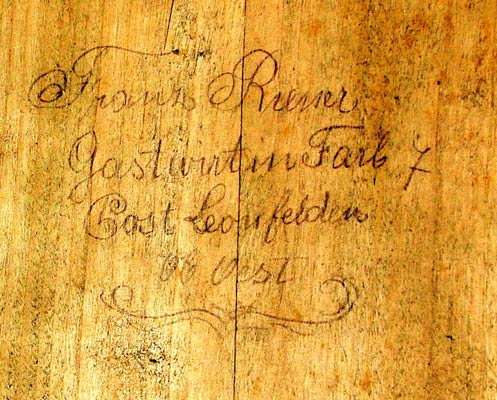 Franz Riener
Gastwirt in Farb 7
Post Leonfelden
Ob Öst